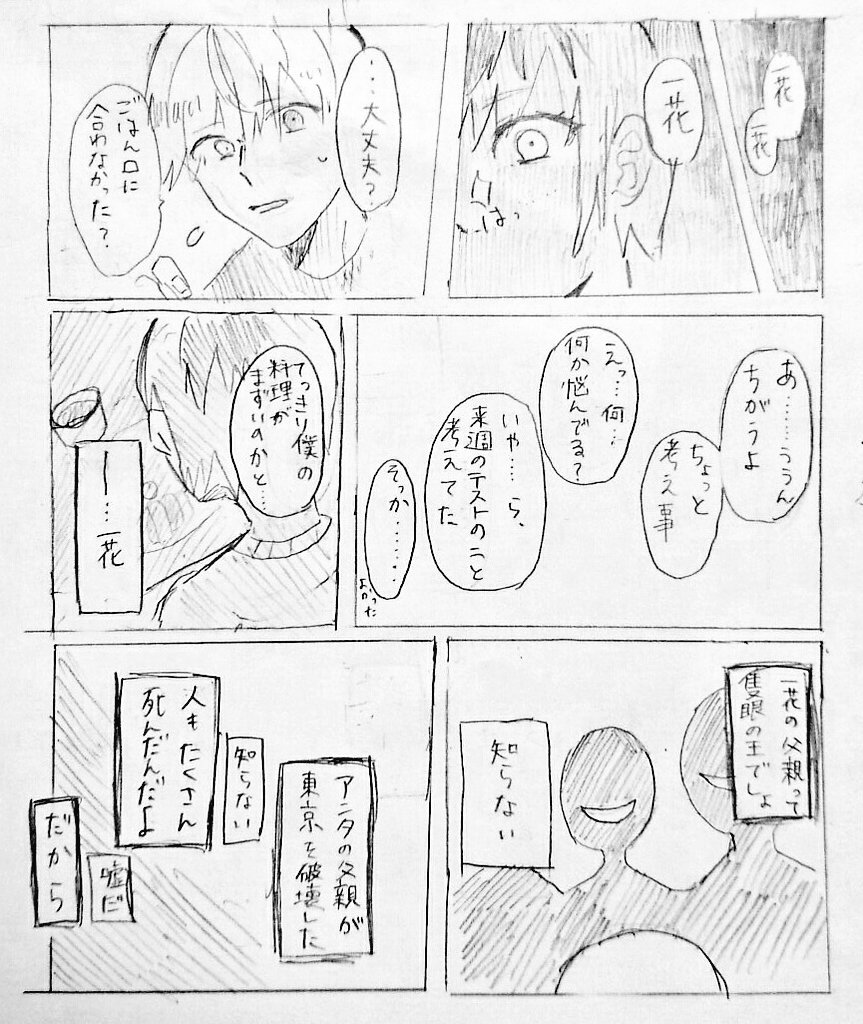 一花
一花
一花
はっ
…大丈夫？
ごはん口に
合わなかった？
あ……ううん
ちがうよ
ちょっと
考え事
えっ…何…
何か悩んでる？
いや…ら、
来週のテストのこと
考えてた
そっか……
よかった
てっきり僕の
料理が
まずいのかと…
ー…一花
一花の父親って
隻眼の王でしょ
知らない
アンタの父親が
東京を破壊した
知らない
人もたくさん
死んだんだよ
嘘だ
だから